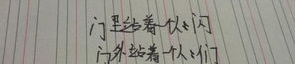 门里站着一个人:闪
门外站着一个人:们